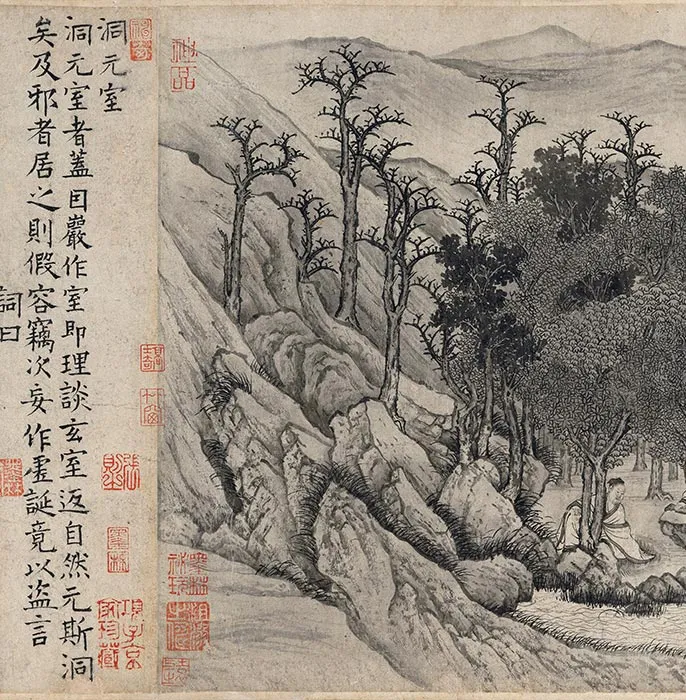 洞元室
洞元室者蓋因巖作室即理談玄室返自然元斯洞
矣及邪者居之則假容竊次妄作虛誕竟以盜言
詞曰
項子京
家珍藏
墨林